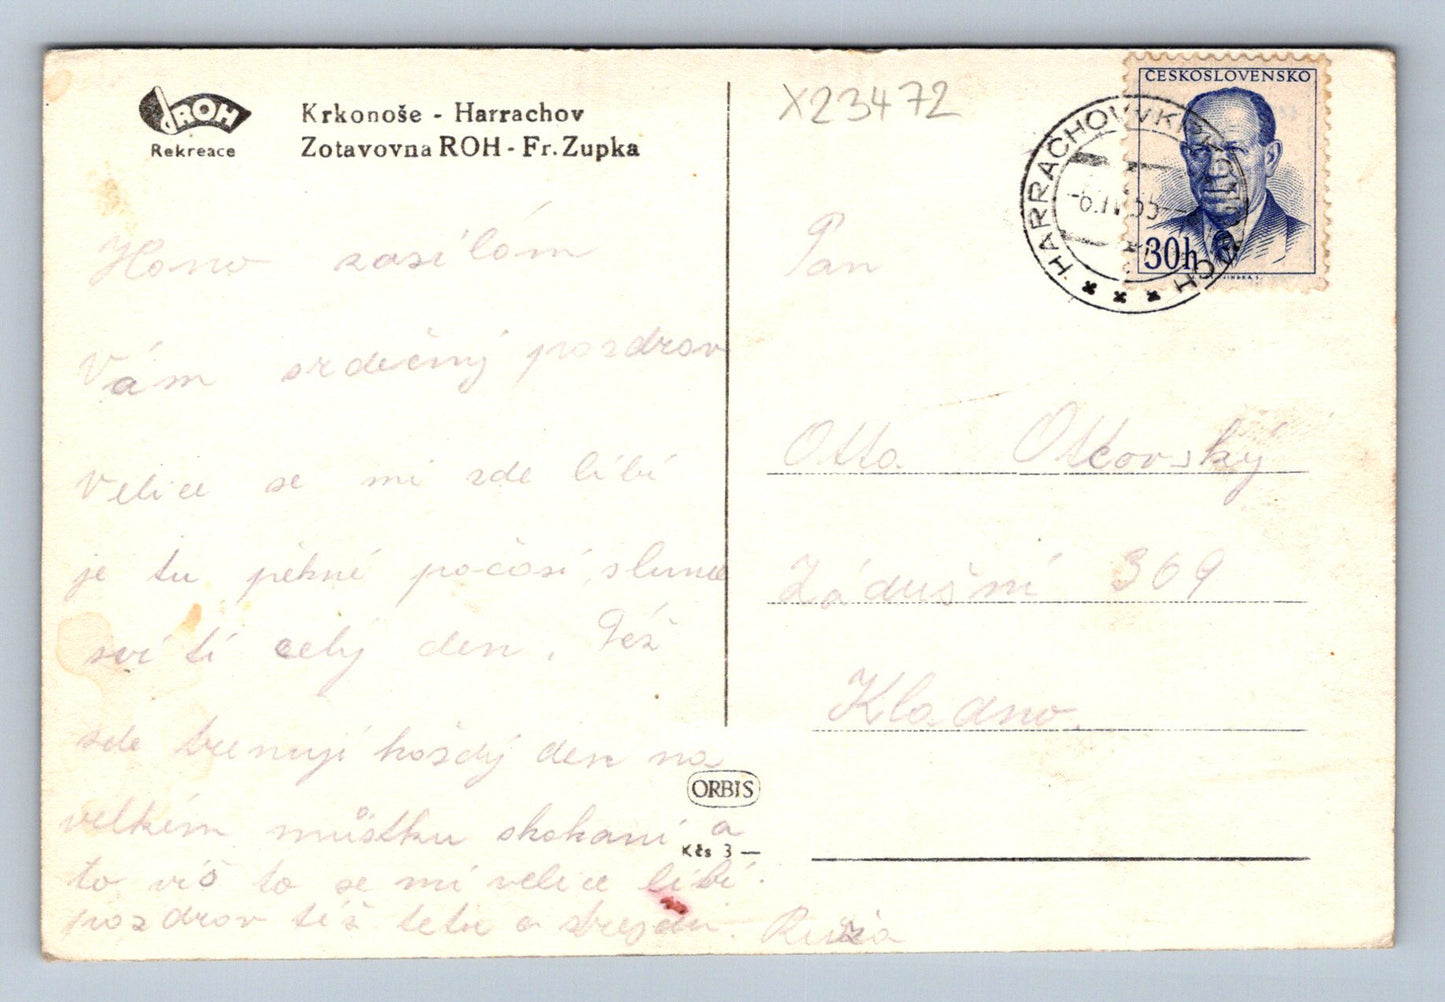 ROH
Rekreace
Krkonoše - Harrachov
Zotavovna ROH - Fr. Zupka
X23472
ČESKOSLOVENSKO
30h
HARRACHOV V KRKONOŠÍCH
-6.IV.55-
Hono zasílám
Vám srdečný pozdrav
Velice se mi zde líbí
je tu pěkné počasí, slunce
svítí celý den. Též
zde trenují každý den na
velkém můstku skokani a
to víš to se mi velice líbí.
pozdrav též tetu a
Růža
Pan
Otto Otčovský
Zádušní 369
Kladno.
ORBIS
Kčs 3 —